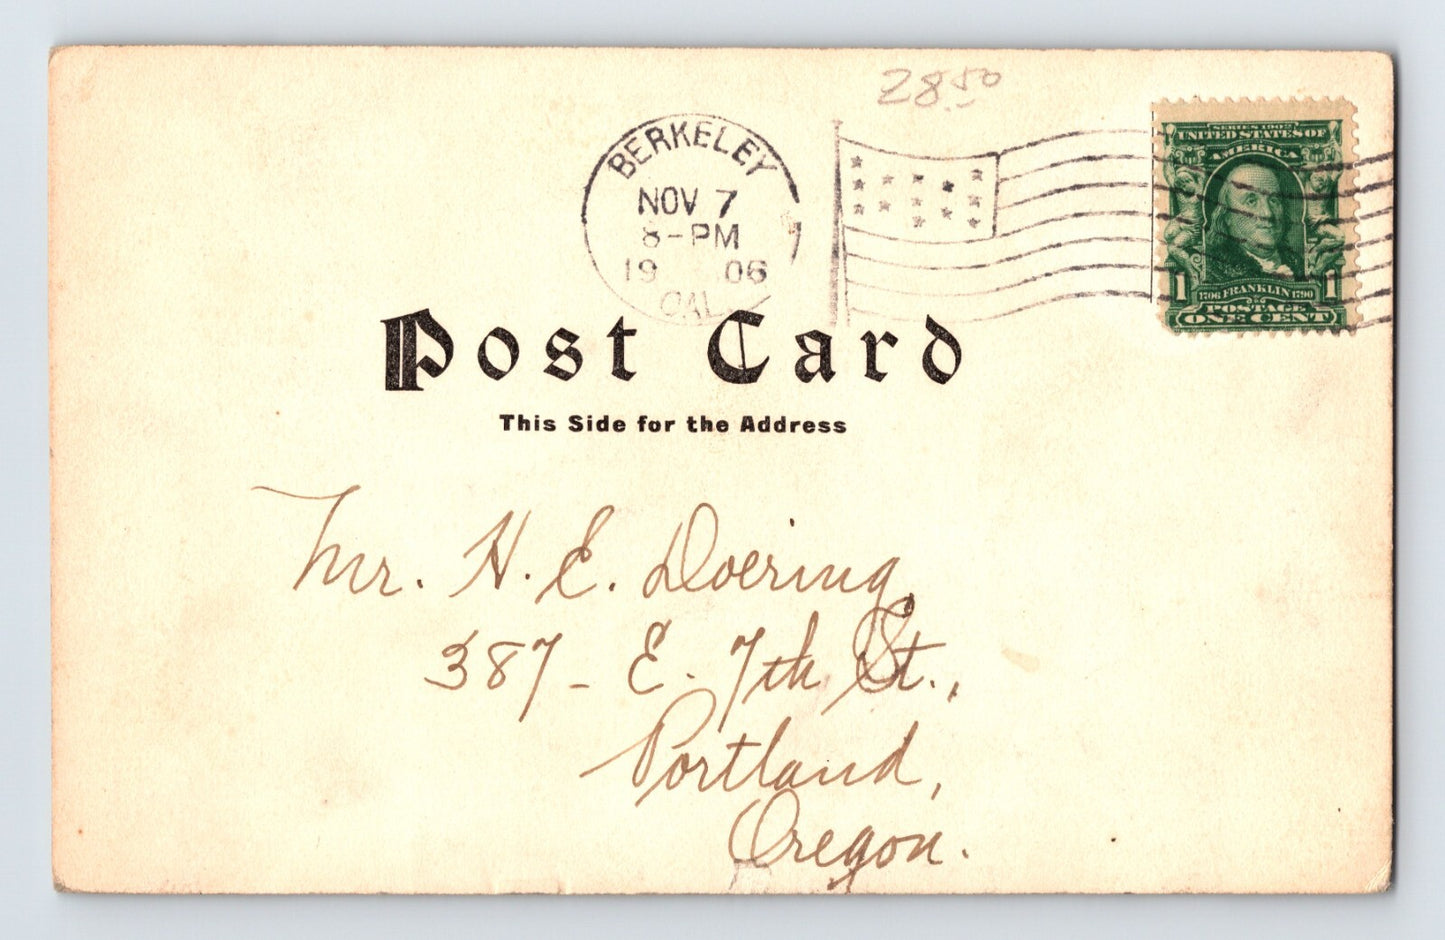 28.50
BERKELEY
NOV 7
8-PM
1906
CAL
SERIES 1902
UNITED STATES OF
AMERICA
1 1
1706 FRANKLIN 1790
POSTAGE
ONE CENT
Post Card
This Side for the Address
Mr. H. E. Doering,
387- E. 7th St.,
Portland,
Oregon.